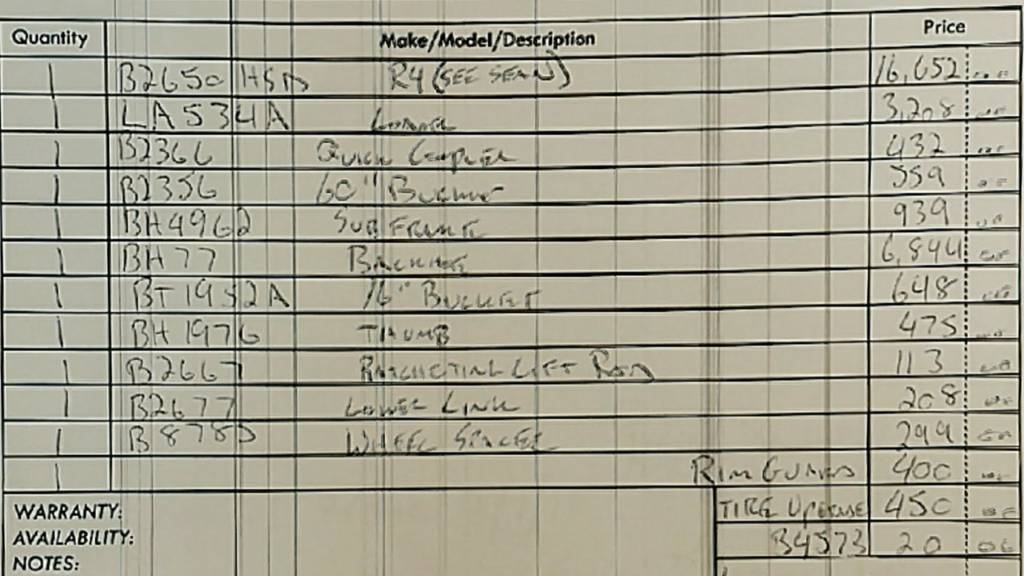 Quantity Make/Model/Description Price
1 B2650 HSD R4 (SEE SEAN) 16,652
1 LA534A LOADER 3,208
1 B2366 QUICK COUPLER 432
1 B2356 60" BUCKET 559
1 BH4962 SUB FRAME 939
1 BH77 BACKHOE 6,844
1 BT1952A 16" BUCKET 648
1 BH1976 THUMB 475
1 B2667 RATCHETING LIFT ROD 113
1 B2677 LOWER LINK 208
1 WHEEL SPACER 299
1 RIM GUARD 400
WARRANTY: TIRE UPGRADE 450
AVAILABILITY: B4573 20
NOTES: